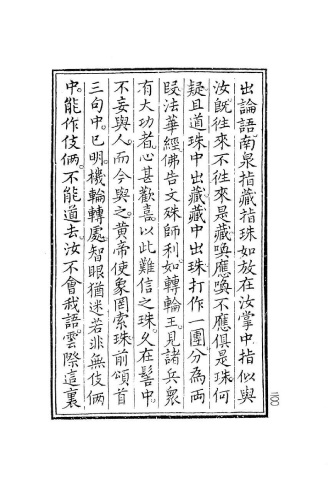 出論語。南泉指藏指珠如放在汝掌中指似與
汝旣徃來不徃來是藏喚應喚不應俱是珠何
疑且道珠中出藏藏中出珠打作一團分為兩
叚法華經佛告文殊師利如轉輪王見諸兵衆
有大功者心甚歡喜以此難信之珠久在髻中
不妄與人。而今與之。黄帝使象罔索珠前頌首
三句中。已明。機輪轉處。智眼猶迷若非無伎倆
中。能作伎倆。不能道去。汝不會我語雲際這裏
二〇〇